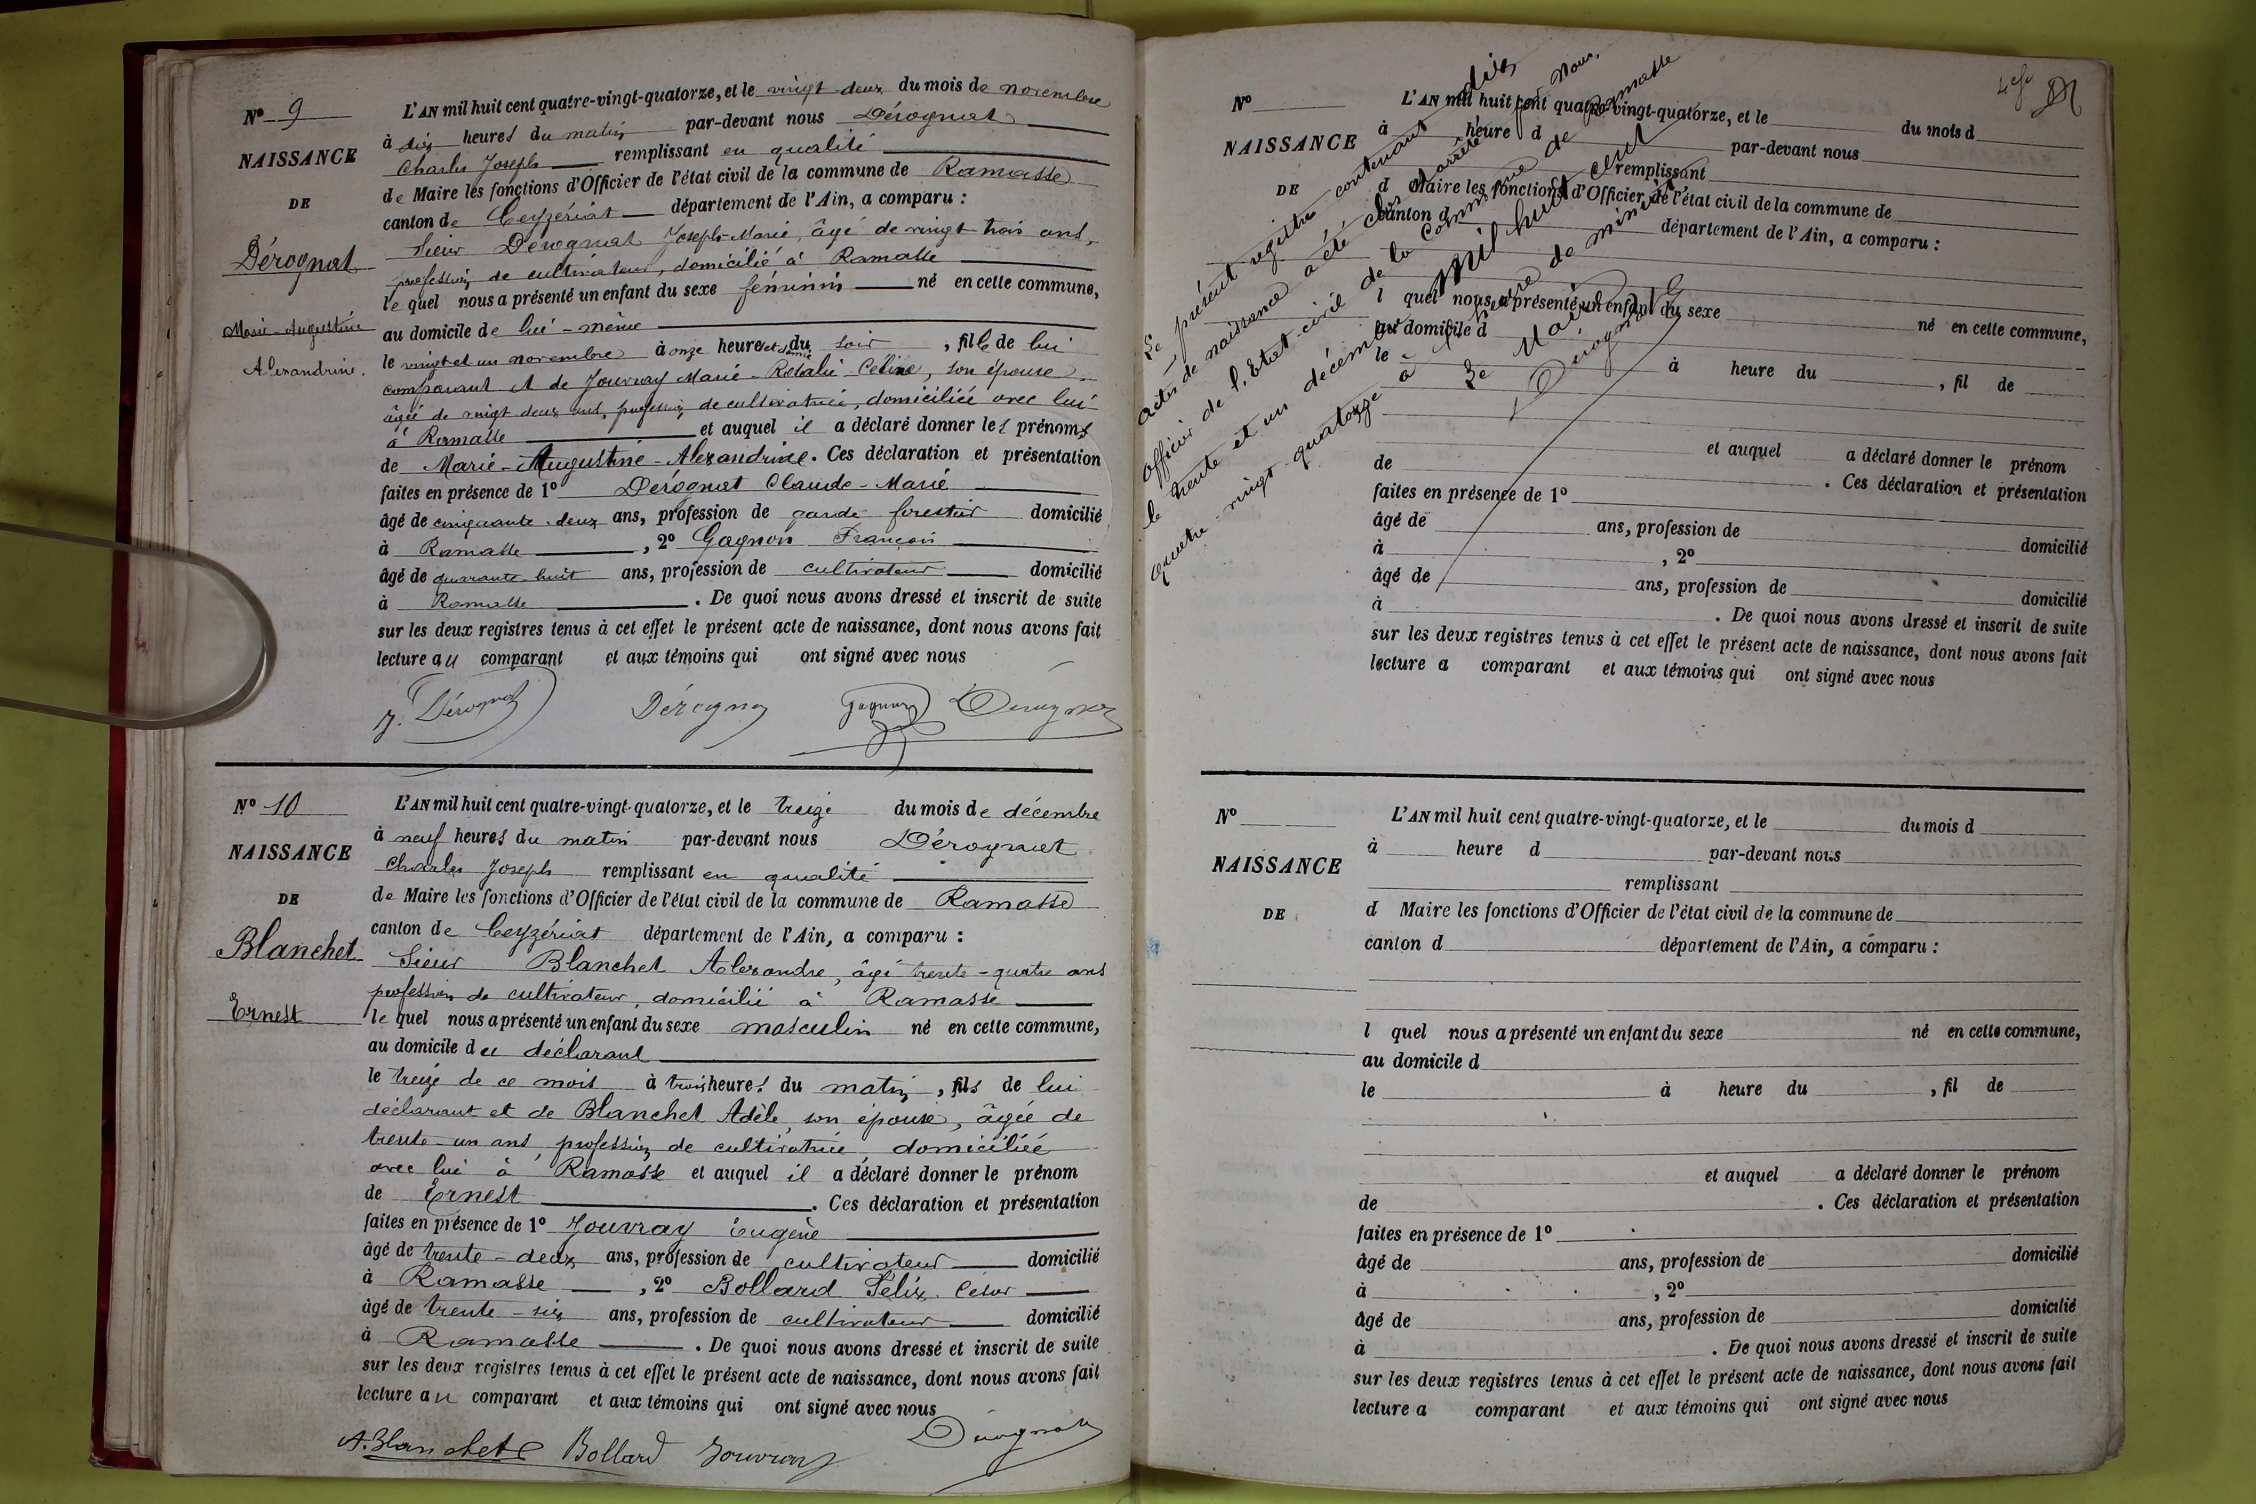 Nº 9
NAISSANCE
DE
Dérognat
Marie-Augustine
Alexandrine.
L'AN mil huit cent quatre-vingt-quatorze, et le vingt deux du mois de novembre
à dix heures du matin par-devant nous Dérognat
Charles Joseph remplissant en qualité
de Maire les fonctions d'Officier de l'état civil de la commune de Ramasse
canton de Ceyzériat département de l'Ain, a comparu :
Sieur Dérognat Joseph-Marie, âgé de vingt trois ans,
profession de cultivateur, domicilié à Ramasse
le quel nous a présenté un enfant du sexe féminin né en cette commune,
au domicile de lui-même
le vingt et un novembre à onze heures et demie du soir, fille de lui
comparant et de Jouvray Marie-Rosalie Céline, son épouse
âgée de vingt deux ans, profession de cultivatrice, domiciliée avec lui
à Ramasse et auquel il a déclaré donner les prénoms
de Marie-Augustine-Alexandrine. Ces déclaration et présentation
faites en présence de 1º Dérognat Claude-Marie
âgé de cinquante-deux ans, profession de garde forestier domicilié
à Ramasse, 2º Gagnon François
âgé de quarante huit ans, profession de cultivateur domicilié
à Ramasse. De quoi nous avons dressé et inscrit de suite
sur les deux registres tenus à cet effet le présent acte de naissance, dont nous avons fait
lecture au comparant et aux témoins qui ont signé avec nous
J. Dérognat Dérogna Gagnon Dérognat
Nº 10
NAISSANCE
DE
Blanchet
Ernest
L'AN mil huit cent quatre-vingt-quatorze, et le treize du mois de décembre
à neuf heures du matin par-devant nous Dérognat
Charles Joseph remplissant en qualité
de Maire les fonctions d'Officier de l'état civil de la commune de Ramasse
canton de Ceyzériat département de l'Ain, a comparu :
Sieur Blanchet Alexandre, âgé trente-quatre ans
profession de cultivateur, domicilié à Ramasse
le quel nous a présenté un enfant du sexe masculin né en cette commune,
au domicile du déclarant
le treize de ce mois à trois heures du matin, fils de lui
déclarant et de Blanchet Adèle, son épouse, âgée de
trente-un ans, profession de cultivatrice domiciliée
avec lui à Ramasse et auquel il a déclaré donner le prénom
de Ernest. Ces déclaration et présentation
faites en présence de 1º Jouvray Eugène
âgé de trente-deux ans, profession de cultivateur domicilié
à Ramasse, 2º Bollard Félix César
âgé de trente-six ans, profession de cultivateur domicilié
à Ramasse. De quoi nous avons dressé et inscrit de suite
sur les deux registres tenus à cet effet le présent acte de naissance, dont nous avons fait
lecture au comparant et aux témoins qui ont signé avec nous
A. Blanchet Bollard Jouvray Dérognat
Le présent registre contenant dix
actes de naissance a été clos et arrêté par Nous,
officier de l'Etat-civil de la Commune de Ramasse
le trente et un décembre mil huit cent
quatre-vingt-quatorze à heure de minuit
Le Maire
Dérognat
Nº
NAISSANCE
DE
L'AN mil huit cent quatre-vingt-quatorze, et le du mois d
à heure d par-devant nous
remplissant
d Maire les fonctions d'Officier de l'état civil de la commune de
canton d département de l'Ain, a comparu :
l quel nous a présenté un enfant du sexe né en cette commune,
au domicile d
le à heure du , fil de
et auquel a déclaré donner le prénom
de . Ces déclaration et présentation
faites en présence de 1º
âgé de ans, profession de domicilié
à , 2º
âgé de ans, profession de domicilié
à . De quoi nous avons dressé et inscrit de suite
sur les deux registres tenus à cet effet le présent acte de naissance, dont nous avons fait
lecture a comparant et aux témoins qui ont signé avec nous
Nº
NAISSANCE
DE
L'AN mil huit cent quatre-vingt-quatorze, et le du mois d
à heure d par-devant nous
remplissant
d Maire les fonctions d'Officier de l'état civil de la commune de
canton d département de l'Ain, a comparu :
l quel nous a présenté un enfant du sexe né en cette commune,
au domicile d
le à heure du , fil de
et auquel a déclaré donner le prénom
de . Ces déclaration et présentation
faites en présence de 1º
âgé de ans, profession de domicilié
à , 2º
âgé de ans, profession de domicilié
à . De quoi nous avons dressé et inscrit de suite
sur les deux registres tenus à cet effet le présent acte de naissance, dont nous avons fait
lecture a comparant et aux témoins qui ont signé avec nous